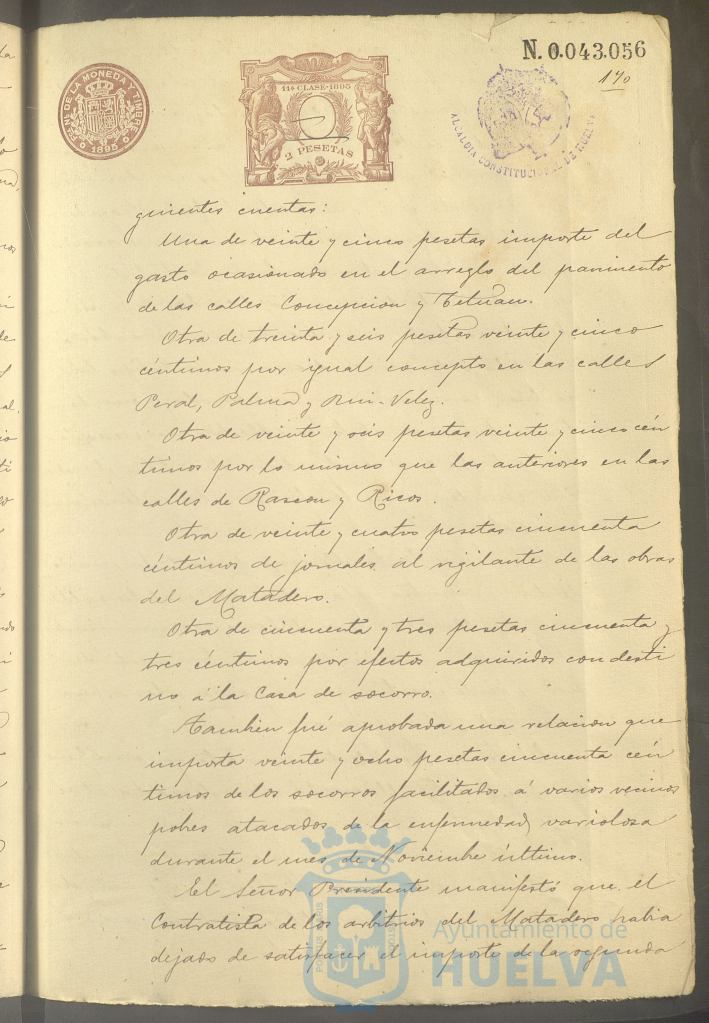 N. 0.043.056
170
FAB. NAL. DE LA MONEDA Y TIMBRE
1895
11ª CLASE-1895
2 PESETAS
ALCALDIA CONSTITUCIONAL DE HUELVA
guientes cuentas:
Una de veinte y cinco pesetas importe del
gasto ocasionado en el arreglo del pavimento
de las calles Concepcion y Tetuan.
Otra de treinta y seis pesetas veinte y cinco
céntimos por igual concepto en las calles
Peral, Palma y Rui-Velez.
Otra de veinte y seis pesetas veinte y cinco cén
timos por lo mismo que las anteriores en las
calles de Rascon y Ricos.
Otra de veinte y cuatro pesetas cincuenta
céntimos de jornales al vigilante de las obras
del Matadero.
Otra de cincuenta y tres pesetas cincuenta y
tres céntimos por efectos adquiridos con desti
no á la Casa de socorro.
Tambien fué aprobada una relacion que
importa veinte y ocho pesetas cincuenta cén
timos de los socorros facilitados á varios vecinos
pobres atacados de la enfermedad variolosa
durante el mes de Noviembre último.
El Señor Presidente manifestó que el
Contratista de los arbitrios del Matadero habia
dejado de satisfacer el importe de la segunda
Ayuntamiento de
HUELVA